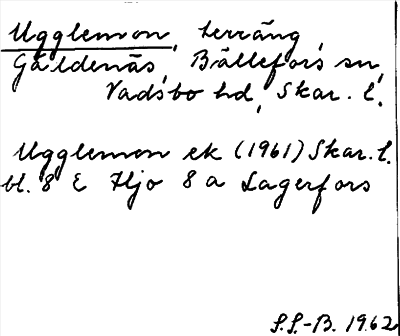 Ugglemon, terräng,
Gäldenäs, Bällefors sn,
Vadsbo hd, Skar. l.
Ugglemon ek (1961) Skar. l.
bl. 8 E Hjo 8 a Lagerfors
S.S.-B. 1962